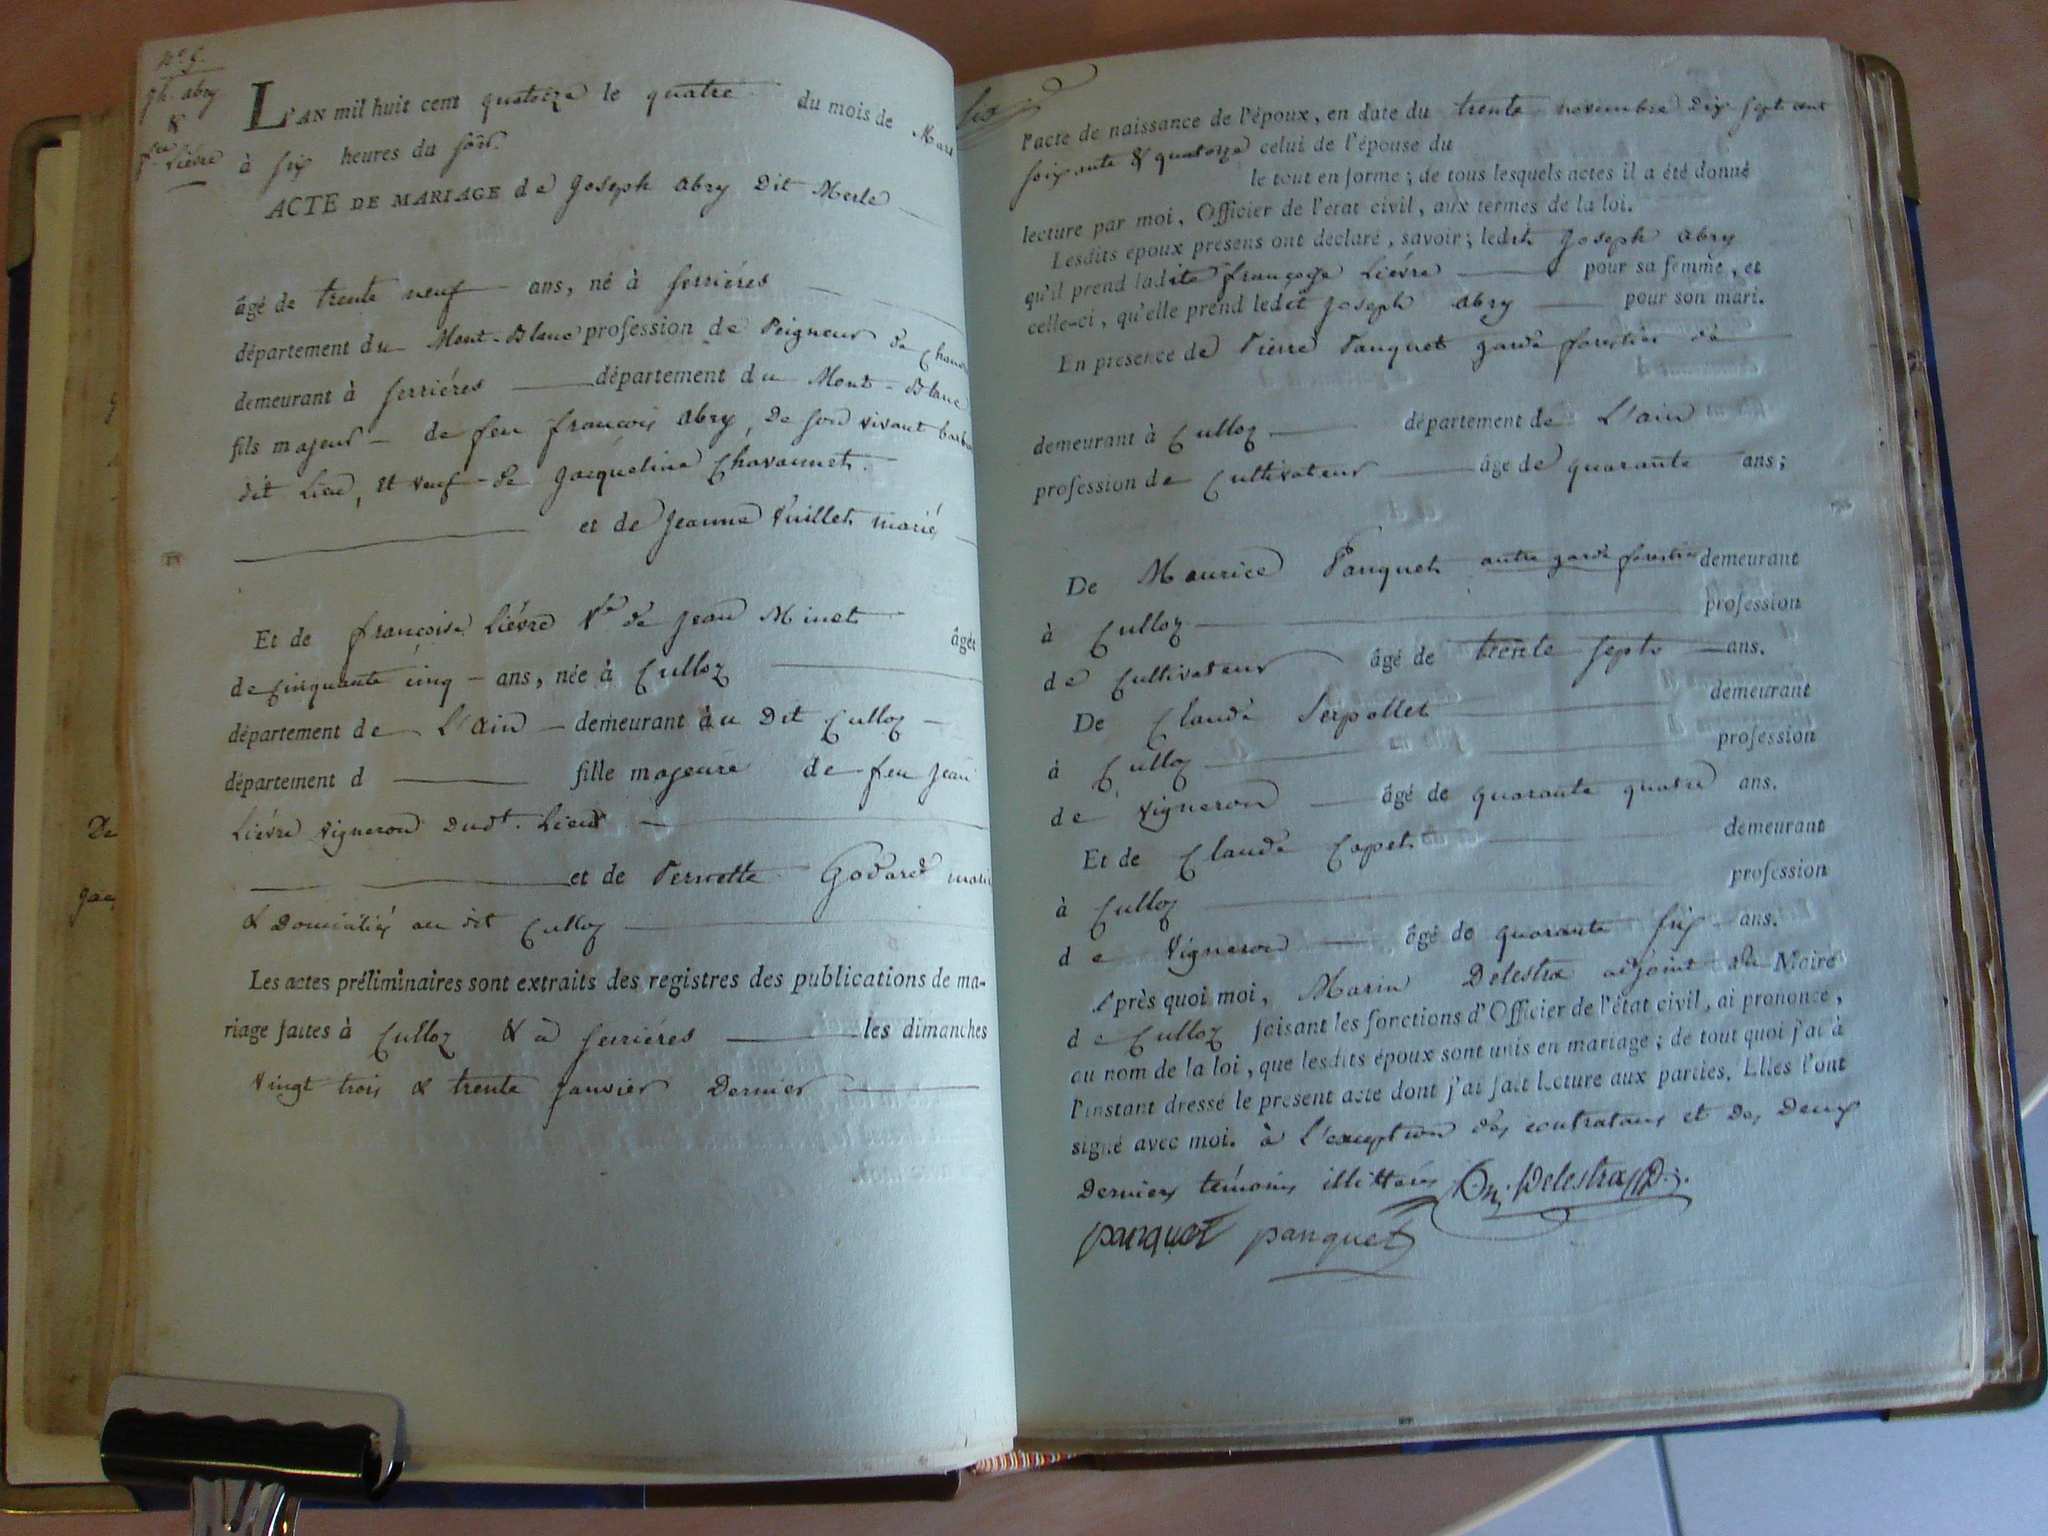 N.º 9.
Jh. abry
&
f.se Liévre
L'AN mil huit cent quatorze le quatre du mois de Mars
à six heures du soir.
ACTE DE MARIAGE de Joseph abry Dit Merle
âgé de trente neuf ans, né à ferriéres
département du Mont-Blanc profession de Peigneur de Chanvre
demeurant à ferriéres département du Mont-Blanc
fils majeur de feu françois abry, de son vivant
dit Lieu, et veuf de Jacqueline Chavannet.
et de Jeanne Vuillet mariés
Et de françoise Liévre Ve de Jean Minet âgée
de Cinquante cinq ans, née à Culloz
département de L'ain demeurant au dit Culloz
département d fille majeure de feu Jean
Liévre vigneron dudt. Lieu
et de Pernette Godard mariés
& Domiciliés au dit Culloz
Les actes préliminaires sont extraits des registres des publications de ma-
riage faites à Culloz & à ferriéres les dimanches
Vingt trois & trente Janvier Dernier
De
l'acte de naissance de l'époux, en date du trente novembre Dix sept cent
soixante & quatorze celui de l'épouse du
le tout en forme; de tous lesquels actes il a été donné
lecture par moi, Officier de l'état civil, aux termes de la loi.
Lesdits époux présens ont déclaré, savoir; ledit Joseph abry
qu'il prend ladite françoise Liévre pour sa femme, et
celle-ci, qu'elle prend ledit Joseph abry pour son mari.
En présence de Pierre Panquet garde forestier de
demeurant à Culloz département de L'ain
profession de Cultivateur âgé de quarante ans;
De Maurice Panquet autre garde forestier demeurant
à Culloz profession
de Cultivateur âgé de trente sept ans.
De Claude Serpollet demeurant
à Culloz profession
de Vigneron âgé de quarante quatre ans.
Et de Claude Capet demeurant
à Culloz profession
de Vigneron âgé de quarante six ans.
Après quoi moi, Marin Delestra adjoint au Maire
de Culloz faisant les fonctions d'Officier de l'état civil, ai prononcé,
au nom de la loi, que lesdits époux sont unis en mariage; de tout quoi j'ai à
l'instant dressé le présent acte dont j'ai fait lecture aux parties. Elles l'ont
signé avec moi. à L'exception des contratans et Des Deux
Derniers témoins illittérés Delestra
panquet panquet